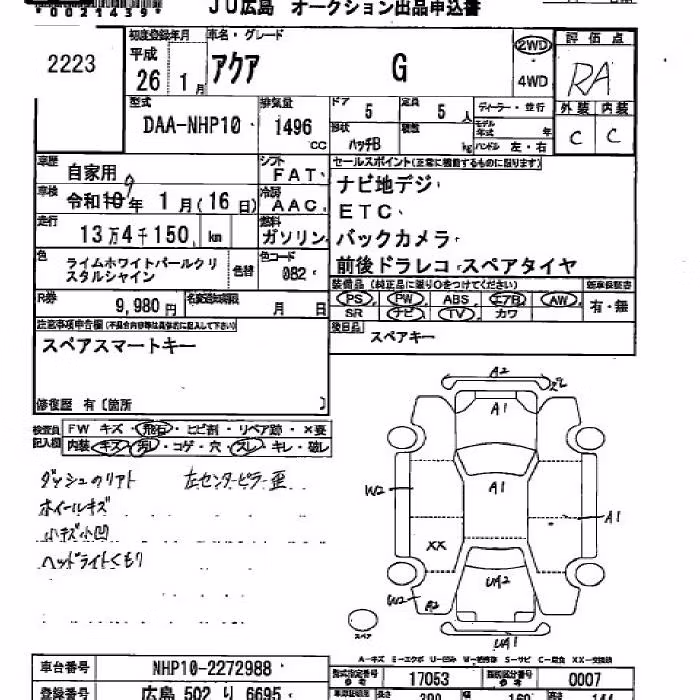 *0021439*
JU広島 オークション出品申込書
2223
初度登録年月
平成
26 1月
車名・グレード
アクア G
2WD
4WD
評価点
RA
外装 内装
C C
型式
DAA-NHP10
排気量
1496
CC
ドア
5
定員
5
人
形状
ハッチB
積数
kg
ディーラー・並行
モデル年式
年
ハンドル 左・右
車歴
自家用
シフト
FAT
車検
令和10年 1月(16日)
9
冷房
AAC
走行
13万4千150 km
燃料
ガソリン
色
ライムホワイトパールクリスタルシャイン
色替
色コード
082
R券
9,980円
名変通知期限
月 日
セールスポイント(正常に機能するものに限ります)
ナビ地デジ
ETC
バックカメラ
前後ドラレコ スペアタイヤ
装備品(純正品に限り○をつけてください)
PS PW ABS エアB AW
SR ナビ TV カワ
新車保証書
有・無
後日品
スペアキー
注意事項申告欄(不具合内容等は具体的に記入して下さい)
スペアスマートキー
修復歴 有〔箇所 〕
検査員記入欄
FW キズ・飛石・ヒビ割・リペア跡・×要
内装 キズ・汚レ・コゲ・穴・スレ・キレ・破レ
ダッシュのリアト 左センターピラー歪
ホイールキズ
小キズ小凹
ヘッドライトくもり
A2
A1
W2
A1
A1
XX
UA2
W2
A2
UA1
スペア
A-キズ E-エクボ U-凹み W-補修跡 S-サビ C-腐食 XX-交換済
車台番号
NHP10-2272988
登録番号
広島 502 り 6695
型式指定番号
参考
17053
類別区分番号
参考
0007